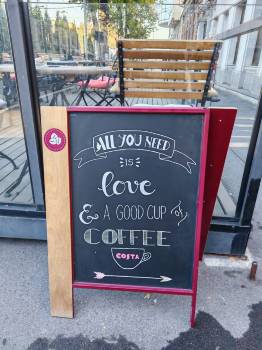 ALL YOU NEED
IS
love
& A GOOD CUP of
COFFEE
COSTA